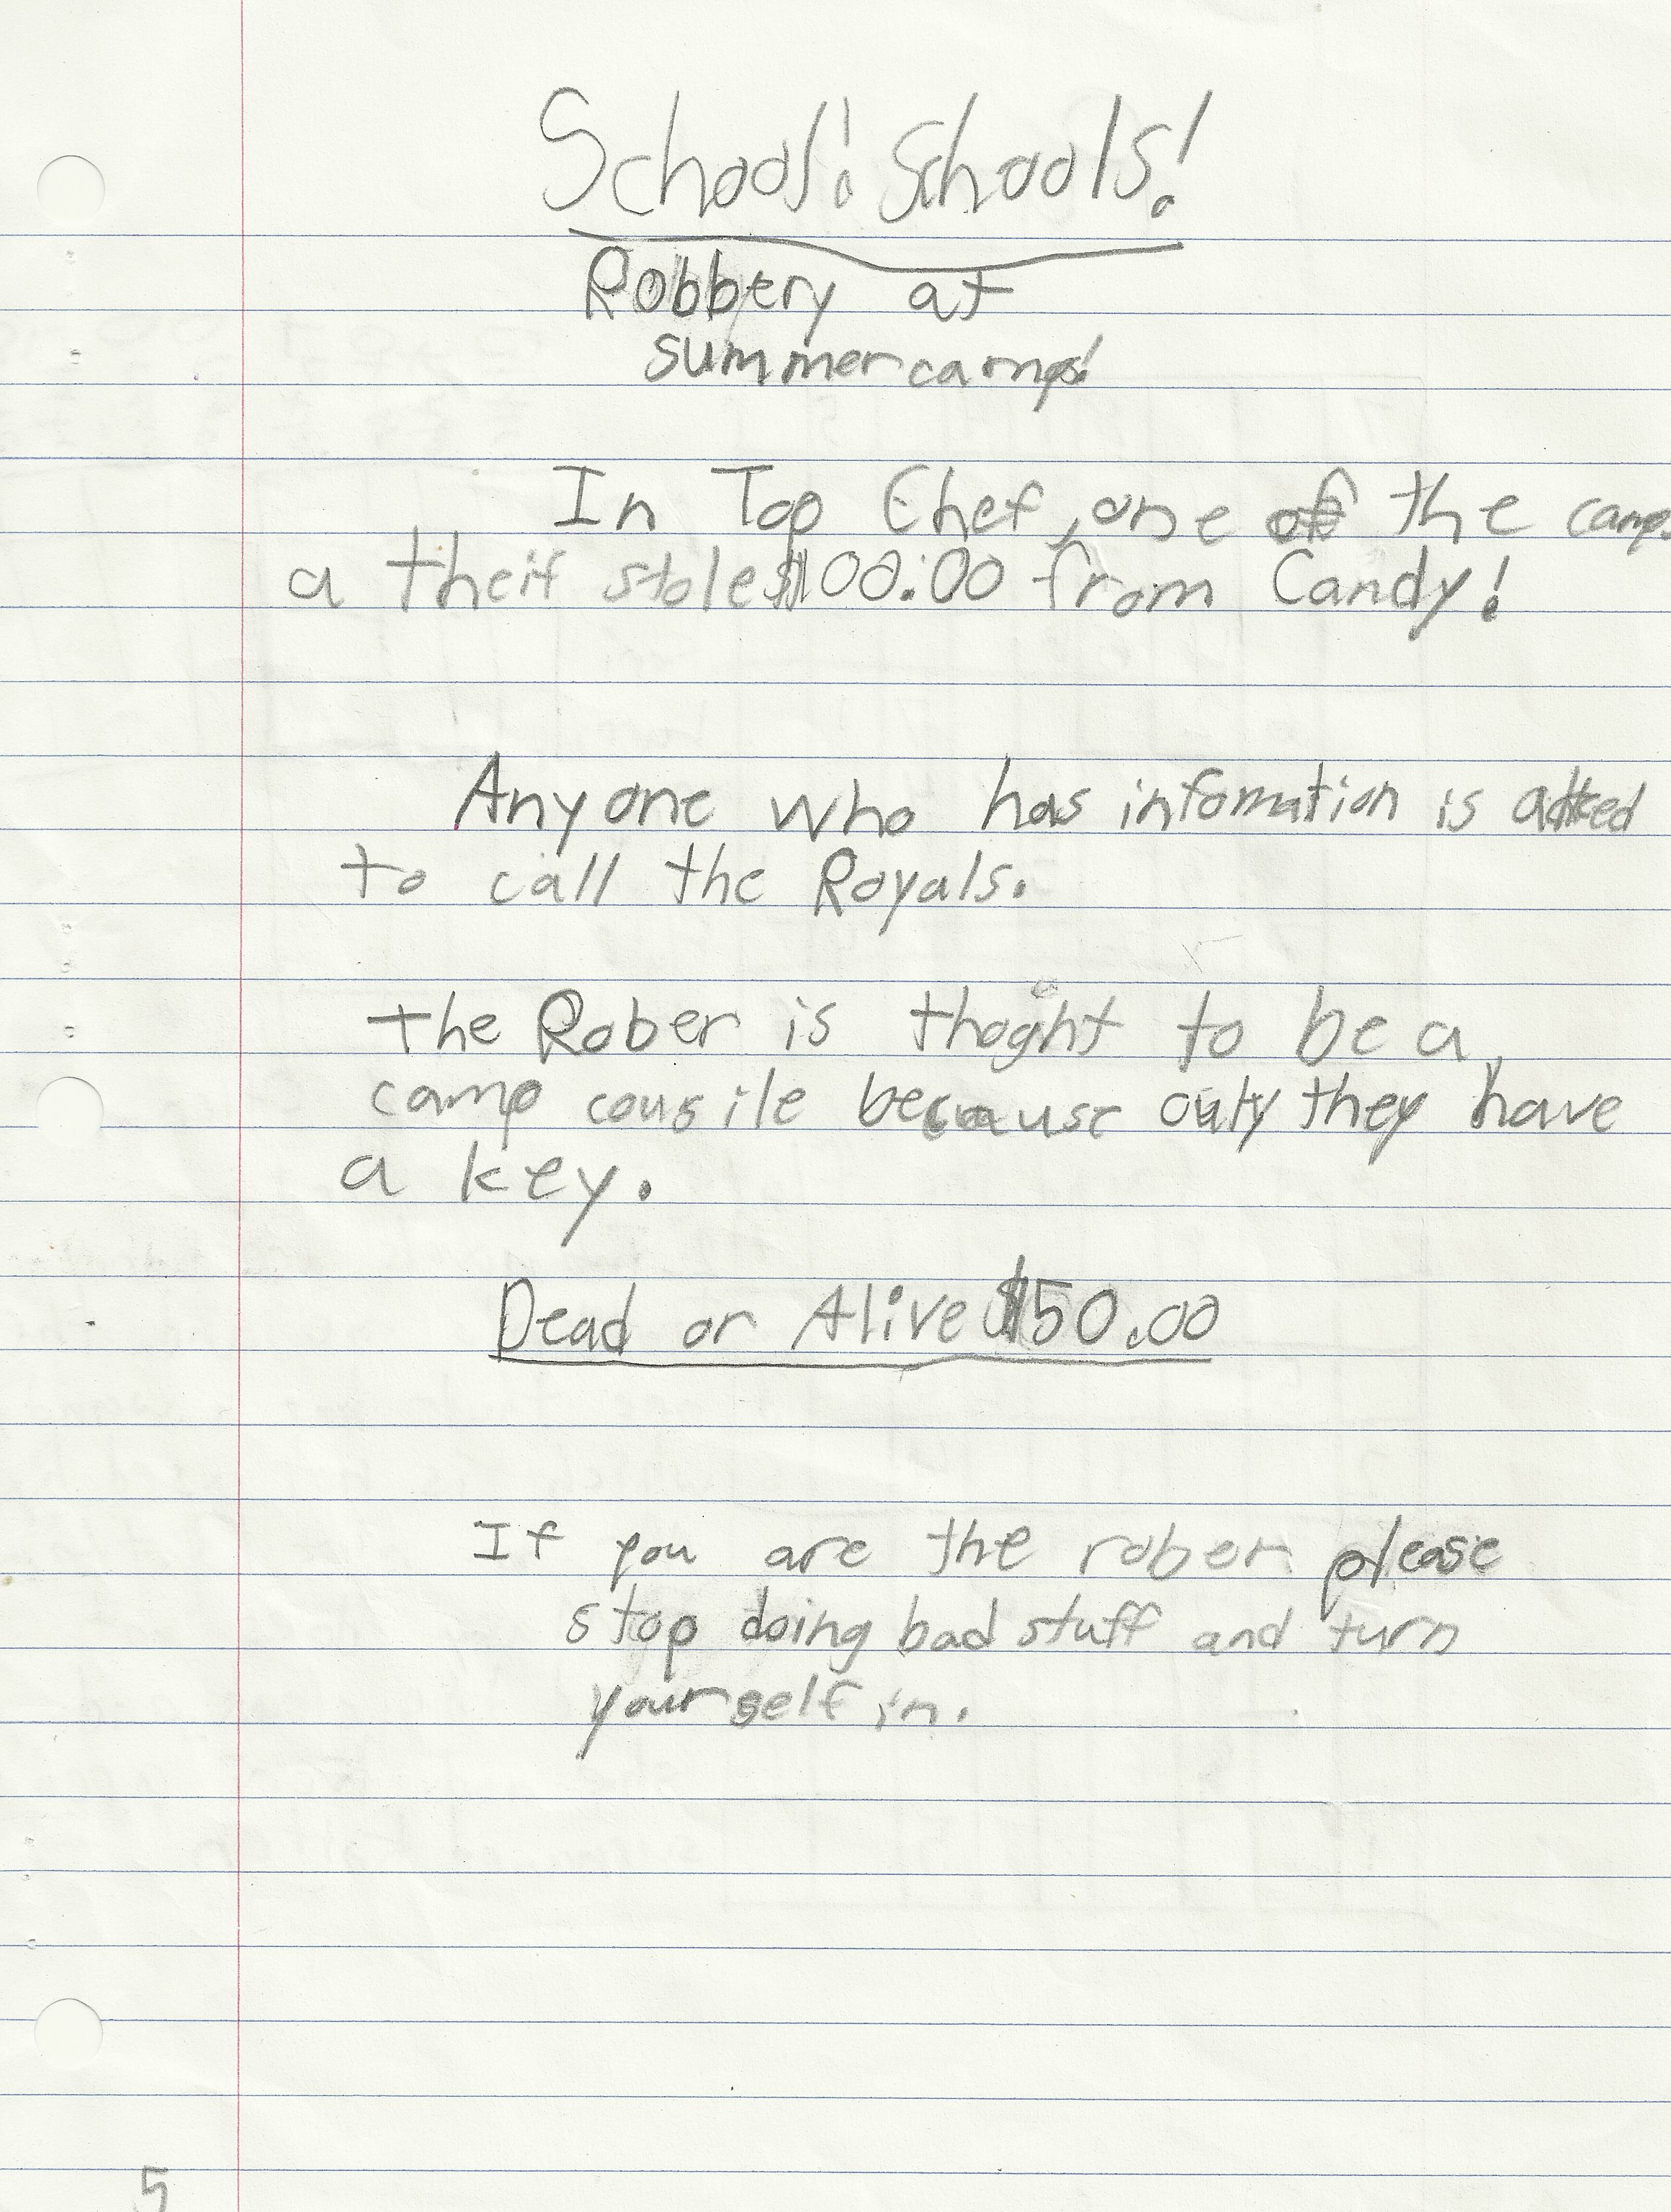 School! Schools!
Robbery at
summer camp!
In Top Chef, one of the camps
a theif stole $100.00 from Candy!
Anyone who has infomation is asked
to call the Royals.
the Rober is thoght to be a
camp cousile because only they have
a key.
Dead or Alive $50.00
If you are the rober please
stop doing bad stuff and turn
yourself in.
5